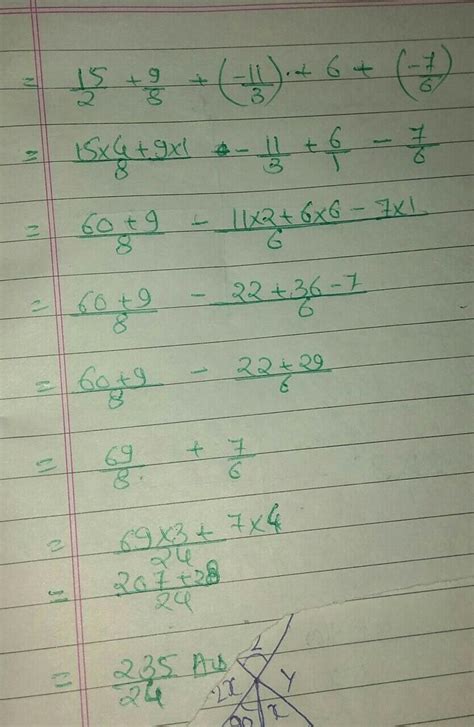 = 15/2 + 9/8 + (-11/3) + 6 + (-7/6)
= 15×4+9×1/8 - 11/3 + 6/1 - 7/6
= 60+9/8 - 11×2+6×6-7×1/6
= 60+9/8 - 22+36-7/6
= 60+9/8 - 22+29/6
= 69/8 + 7/6
= 69×3+7×4/24
= 207+28/24
= 235/24 Ans
2x
y
90
x